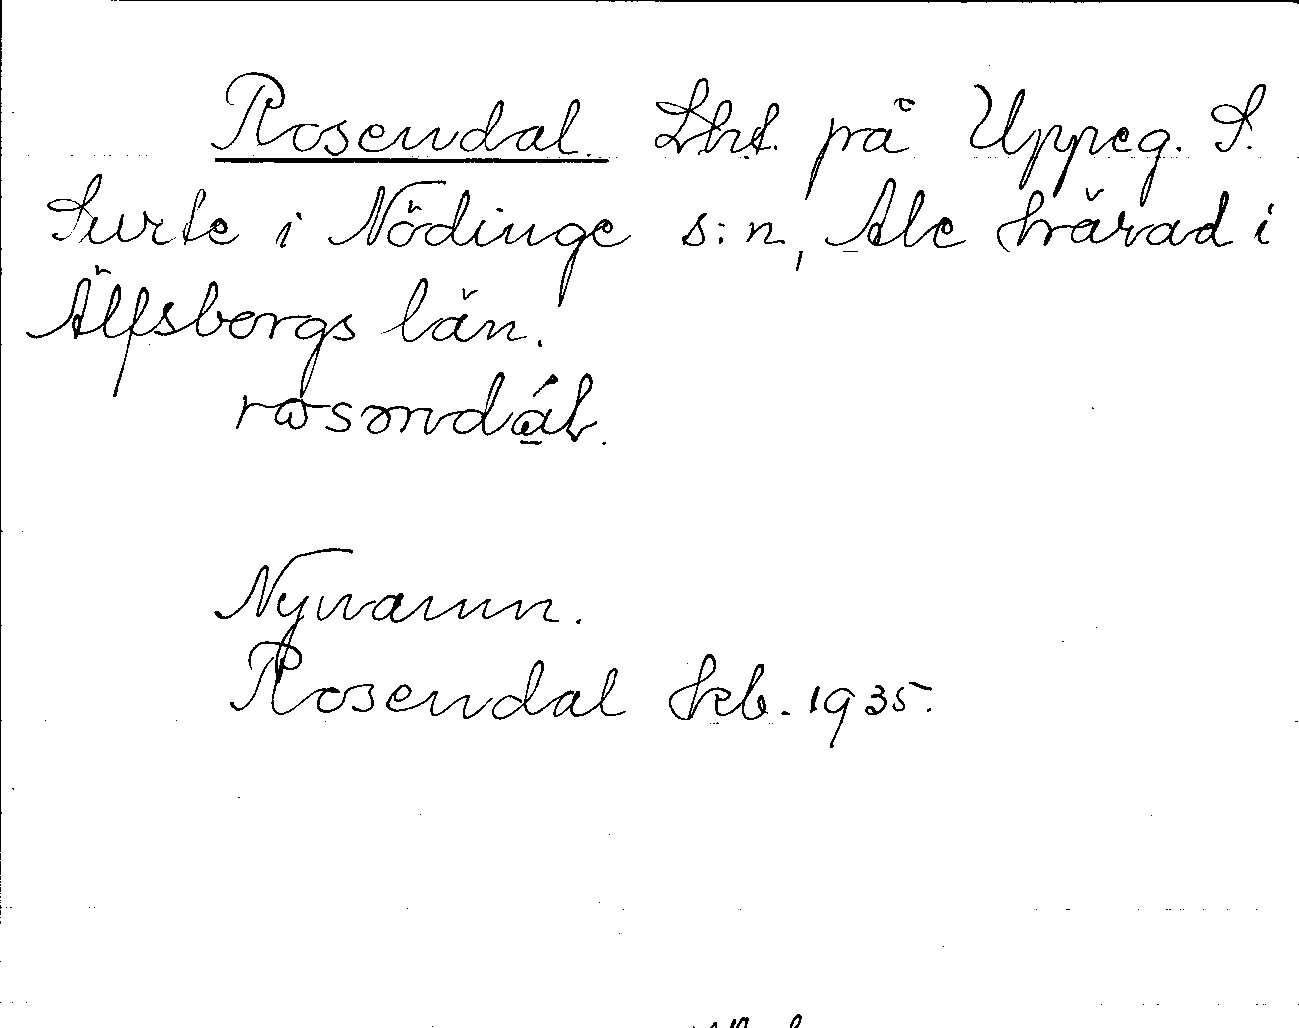 Rosendal. Lht. på Uppeg. S.
Surte i Nödinge s:n, Ale härad i
Älfsborgs län.
Nynamn.
Rosendal Jrb. 1935.